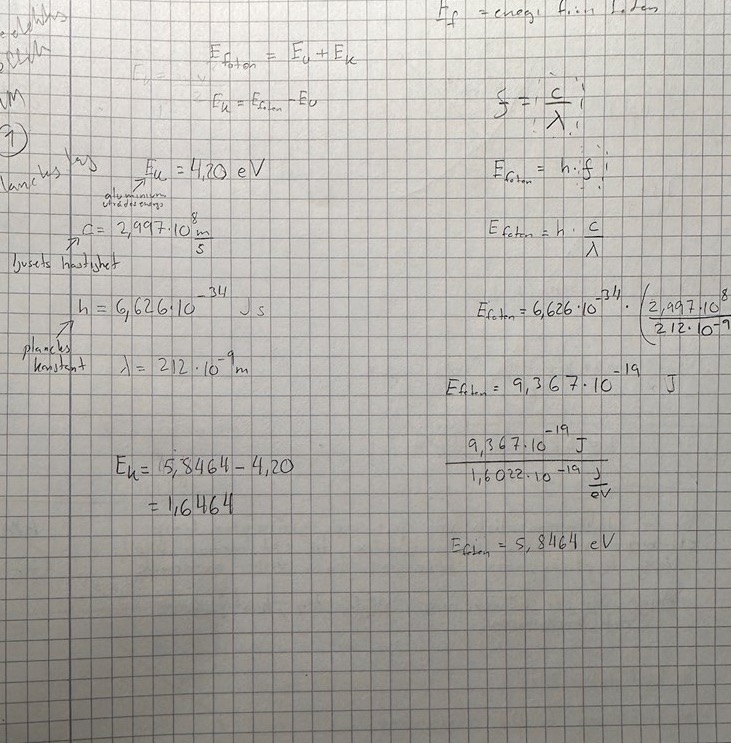 E_f = energi från foton
E_foton = E_u + E_k
E_k = E_foton - E_u
f = c/λ
1
E_u = 4,20 eV
aluminium
utträdesenergi
E_foton = h · f
c = 2,997·10^8 m/s
ljusets hastighet
E_foton = h · c/λ
h = 6,626·10^-34 Js
plancks
konstant
E_foton = 6,626·10^-34 · (2,997·10^8 / 212·10^-9
λ = 212·10^-9 m
E_foton = 9,367·10^-19 J
9,367·10^-19 J / 1,6022·10^-19 J/eV
E_k = 5,8464 - 4,20
= 1,6464
E_foton = 5,8464 eV